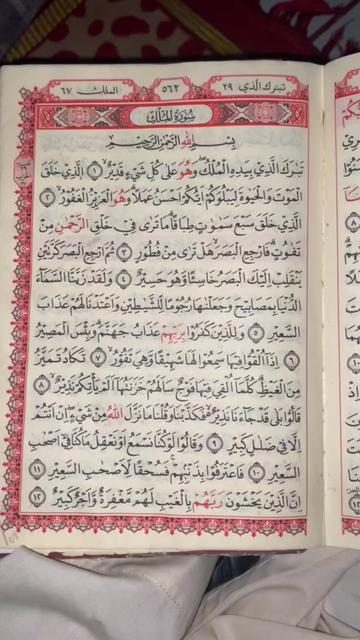 تبرك الذي ٢٩ ٥٦٢ الملك ٦٧
سُورَةُ الْمُلْكِ
بِسْمِ اللهِ الرَّحْمٰنِ الرَّحِيْمِ
تَبٰرَكَ الَّذِيْ بِيَدِهِ الْمُلْكُ وَهُوَ عَلٰى كُلِّ شَيْءٍ قَدِيْرٌ ١ الَّذِيْ خَلَقَ
الْمَوْتَ وَالْحَيٰوةَ لِيَبْلُوَكُمْ اَيُّكُمْ اَحْسَنُ عَمَلًا وَهُوَ الْعَزِيْزُ الْغَفُوْرُ ٢
الَّذِيْ خَلَقَ سَبْعَ سَمٰوٰتٍ طِبَاقًا مَا تَرٰى فِيْ خَلْقِ الرَّحْمٰنِ مِنْ
تَفٰوُتٍ فَارْجِعِ الْبَصَرَ هَلْ تَرٰى مِنْ فُطُوْرٍ ٣ ثُمَّ ارْجِعِ الْبَصَرَ كَرَّتَيْنِ
يَنْقَلِبْ اِلَيْكَ الْبَصَرُ خَاسِئًا وَّهُوَ حَسِيْرٌ ٤ وَلَقَدْ زَيَّنَّا السَّمَآءَ
الدُّنْيَا بِمَصَابِيْحَ وَجَعَلْنٰهَا رُجُوْمًا لِّلشَّيٰطِيْنِ وَاَعْتَدْنَا لَهُمْ عَذَابَ
السَّعِيْرِ ٥ وَلِلَّذِيْنَ كَفَرُوْا بِرَبِّهِمْ عَذَابُ جَهَنَّمَ وَبِئْسَ الْمَصِيْرُ
٦ اِذَآ اُلْقُوْا فِيْهَا سَمِعُوْا لَهَا شَهِيْقًا وَّهِيَ تَفُوْرُ ٧ تَكَادُ تَمَيَّزُ
مِنَ الْغَيْظِ كُلَّمَآ اُلْقِيَ فِيْهَا فَوْجٌ سَاَلَهُمْ خَزَنَتُهَآ اَلَمْ يَاْتِكُمْ نَذِيْرٌ ٨
قَالُوْا بَلٰى قَدْ جَآءَنَا نَذِيْرٌ فَكَذَّبْنَا وَقُلْنَا مَا نَزَّلَ اللهُ مِنْ شَيْءٍ اِنْ اَنْتُمْ
اِلَّا فِيْ ضَلٰلٍ كَبِيْرٍ ٩ وَقَالُوْا لَوْ كُنَّا نَسْمَعُ اَوْ نَعْقِلُ مَا كُنَّا فِيْٓ اَصْحٰبِ
السَّعِيْرِ ١٠ فَاعْتَرَفُوْا بِذَنْبِهِمْ فَسُحْقًا لِّاَصْحٰبِ السَّعِيْرِ ١١
اِنَّ الَّذِيْنَ يَخْشَوْنَ رَبَّهُمْ بِالْغَيْبِ لَهُمْ مَّغْفِرَةٌ وَّاَجْرٌ كَبِيْرٌ ١٢